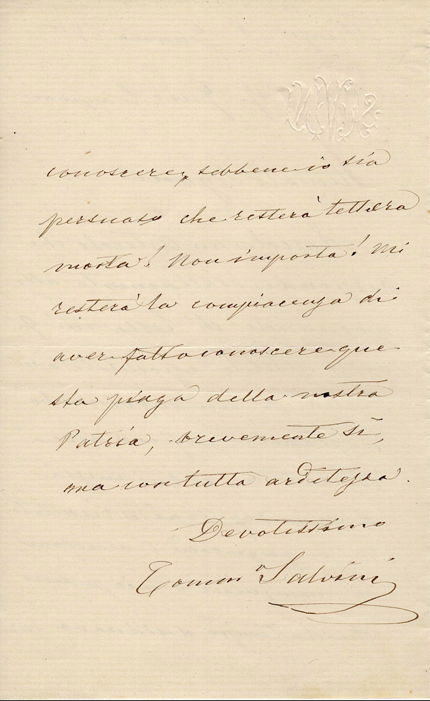 conoscere, sebbene io sia
persuaso che resterà lettera
morta! Non importa! Mi
resterà la compiacenza di
aver fatto conoscere que-
sta piaga della nostra
Patria, brevemente sì,
ma con tutta arditezza.
Devotissimo
Tommo Salvini